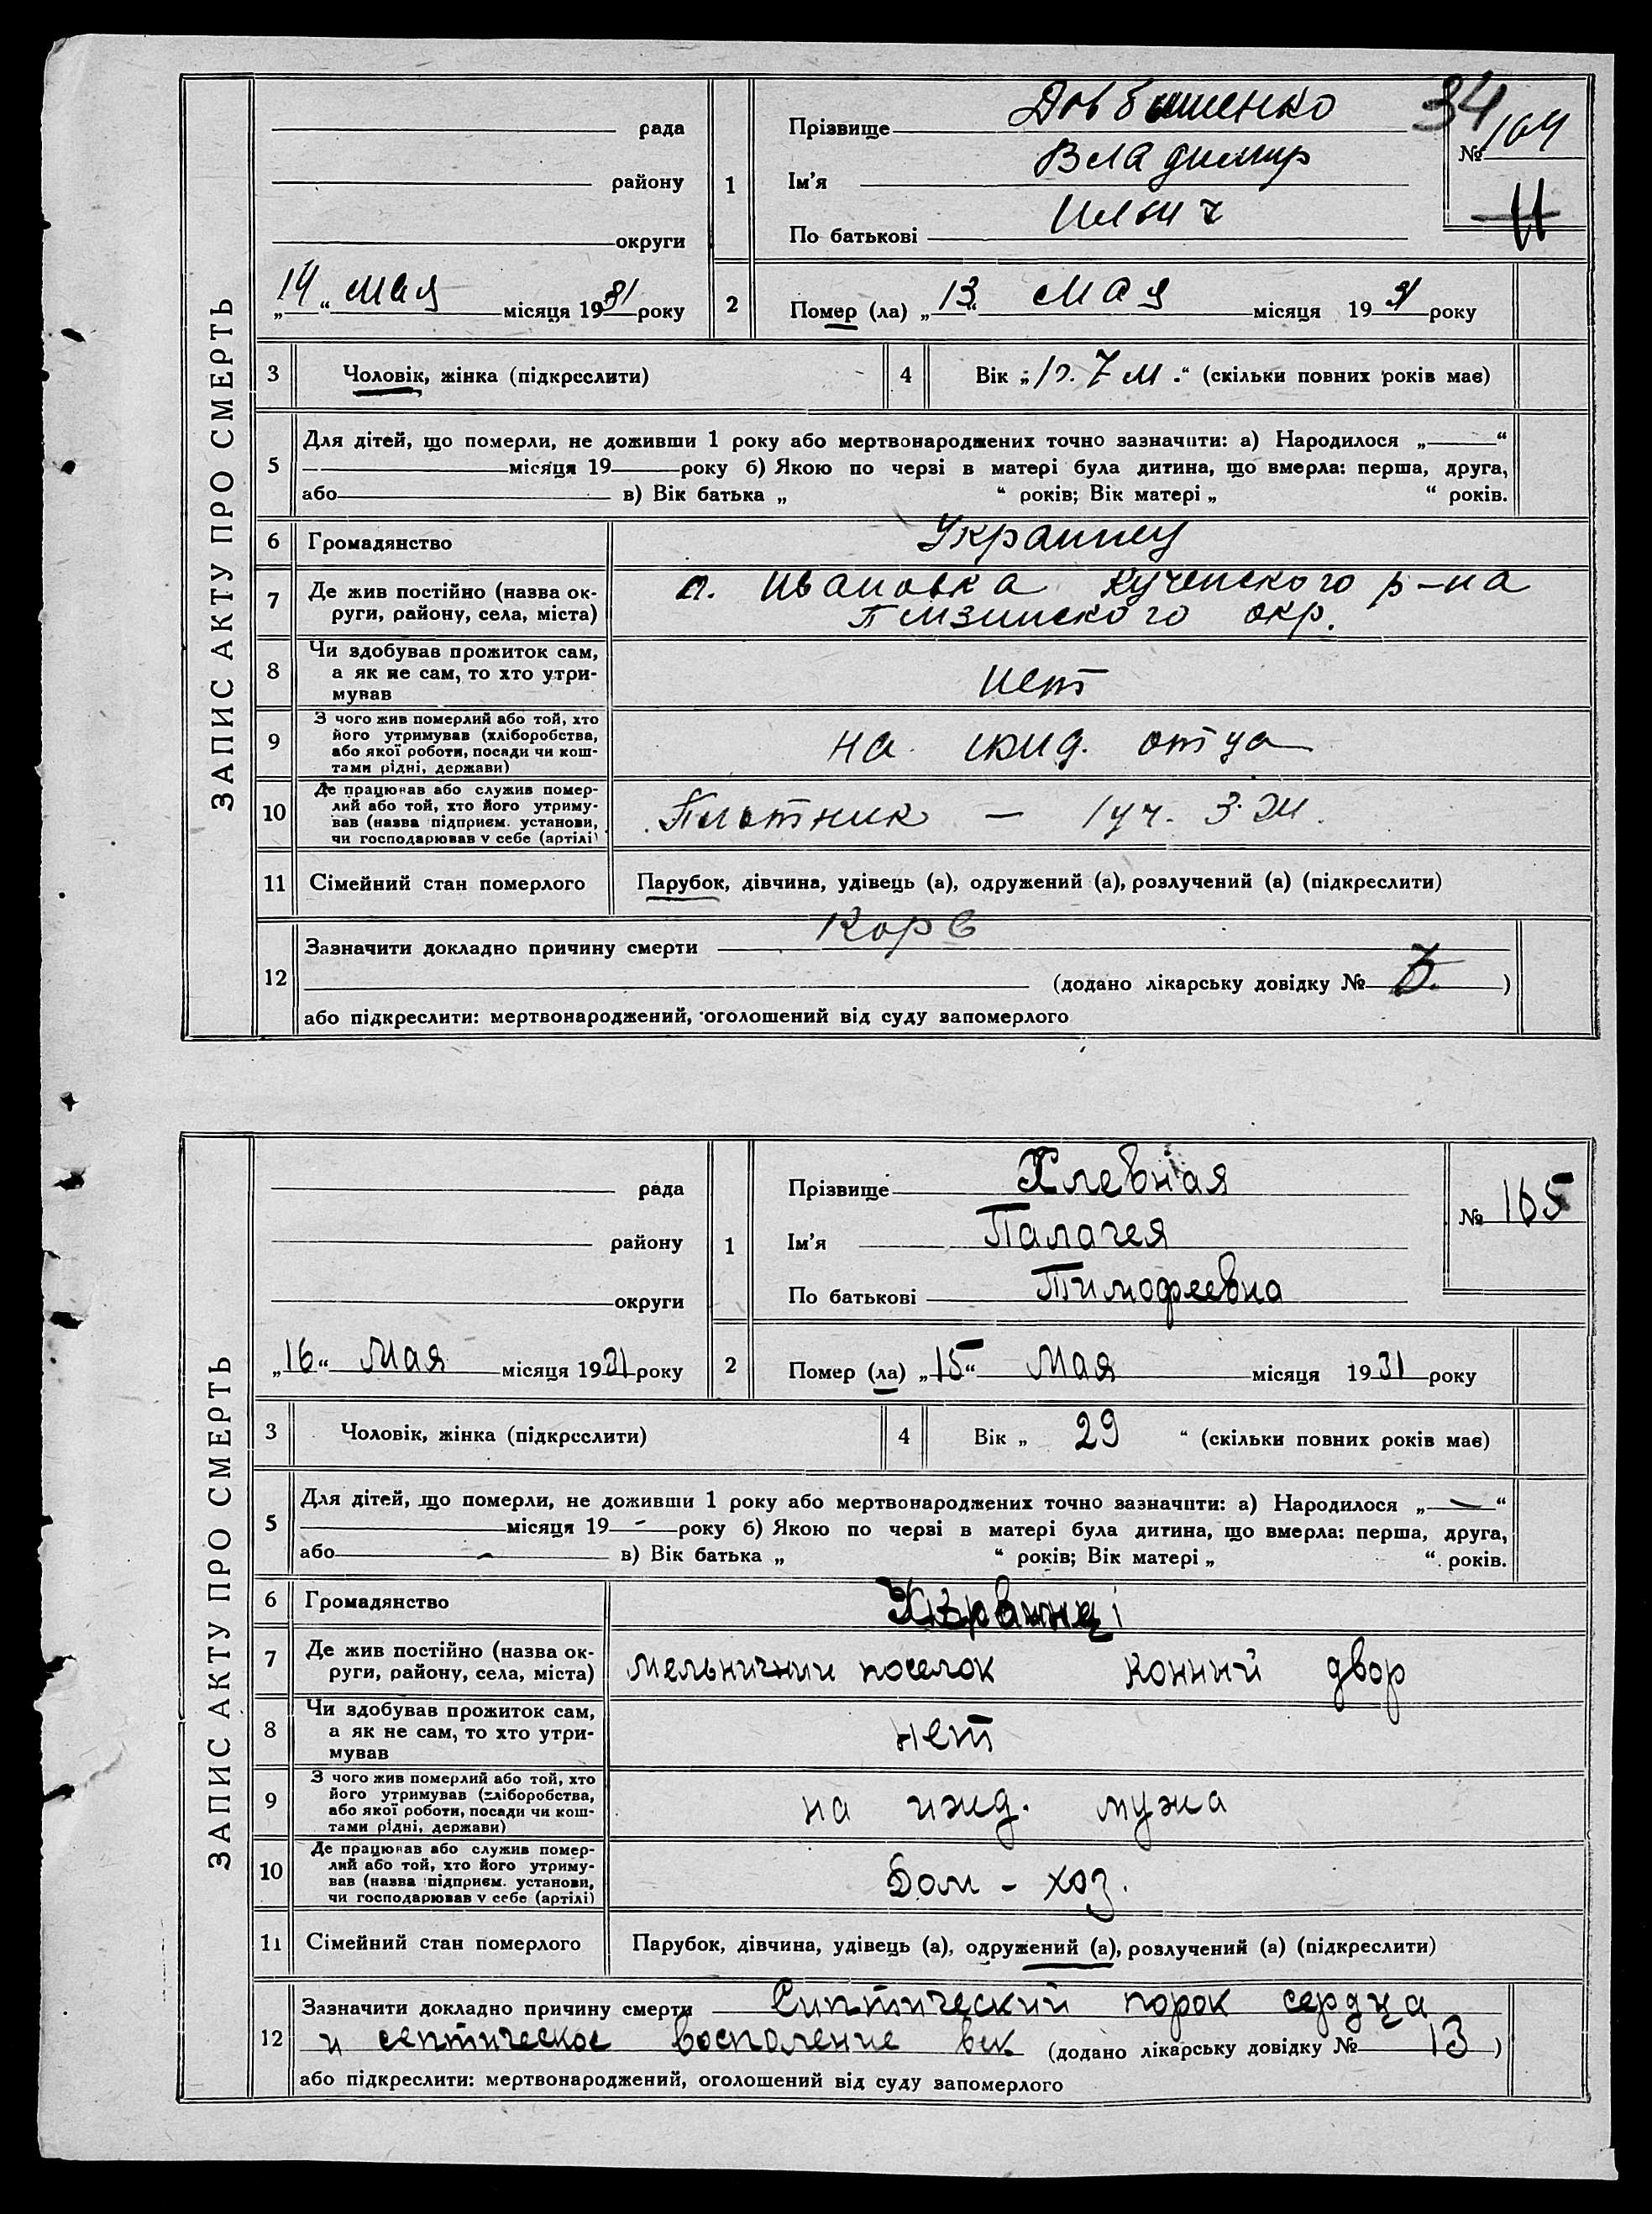 ЗАПИС АКТУ ПРО СМЕРТЬ
34
рада
Прізвище Довбишенко
№ 164
району
1
Ім'я Владимир
11
округи
По батькові Ильич
„14“ мая місяця 1931 року
2
Помер (ла) „13“ мая місяця 1931 року
3
Чоловік, жінка (підкреслити)
4
Вік „1 г. 7 м.“ (скільки повних років має)
5
Для дітей, що померли, не доживши 1 року або мертвонароджених точно зазначити: а) Народилося „ “
місяця 19 року б) Якою по черзі в матері була дитина, що вмерла: перша, друга,
або в) Вік батька „ “ років; Вік матері „ “ років.
6
Громадянство
Украинец
7
Де жив постійно (назва ок-
руги, району, села, міста)
Ивановка р-на
окр.
8
Чи здобував прожиток сам,
а як не сам, то хто утри-
мував
нет
9
З чого жив померлий або той, хто
його утримував (хліборобства,
або якої роботи, посади чи кош-
тами рідні, держави)
на ижд. отца
10
Де працював або служив помер-
лий або той, хто його утриму-
вав (назва підприєм. установи,
чи господарював у себе (артілі)
Плотник — 1 уч.
11
Сімейний стан померлого
Парубок, дівчина, удівець (а), одружений (а), розлучений (а) (підкреслити)
12
Зазначити докладно причину смерти Корь
(додано лікарську довідку № )
або підкреслити: мертвонароджений, оголошений від суду запомерлого
ЗАПИС АКТУ ПРО СМЕРТЬ
рада
Прізвище Хлевная
№ 165
району
1
Ім'я Палагея
округи
По батькові Тимофеевна
„16“ Мая місяця 1931 року
2
Помер (ла) „15“ Мая місяця 1931 року
3
Чоловік, жінка (підкреслити)
4
Вік „ 29 “ (скільки повних років має)
5
Для дітей, що померли, не доживши 1 року або мертвонароджених точно зазначити: а) Народилося „—“
місяця 19 - року б) Якою по черзі в матері була дитина, що вмерла: перша, друга,
або - в) Вік батька „ “ років; Вік матері „ “ років.
6
Громадянство
7
Де жив постійно (назва ок-
руги, району, села, міста)
мельничний поселок конний двор
8
Чи здобував прожиток сам,
а як не сам, то хто утри-
мував
нет
9
З чого жив померлий або той, хто
його утримував (хліборобства,
або якої роботи, посади чи кош-
тами рідні, держави)
на ижд. мужа
10
Де працював або служив помер-
лий або той, хто його утриму-
вав (назва підприєм. установи,
чи господарював у себе (артілі)
Дом - хоз.
11
Сімейний стан померлого
Парубок, дівчина, удівець (а), одружений (а), розлучений (а) (підкреслити)
12
Зазначити докладно причину смерти Сиптический порок сердца
и септическое восполение (додано лікарську довідку № 13)
або підкреслити: мертвонароджений, оголошений від суду запомерлого